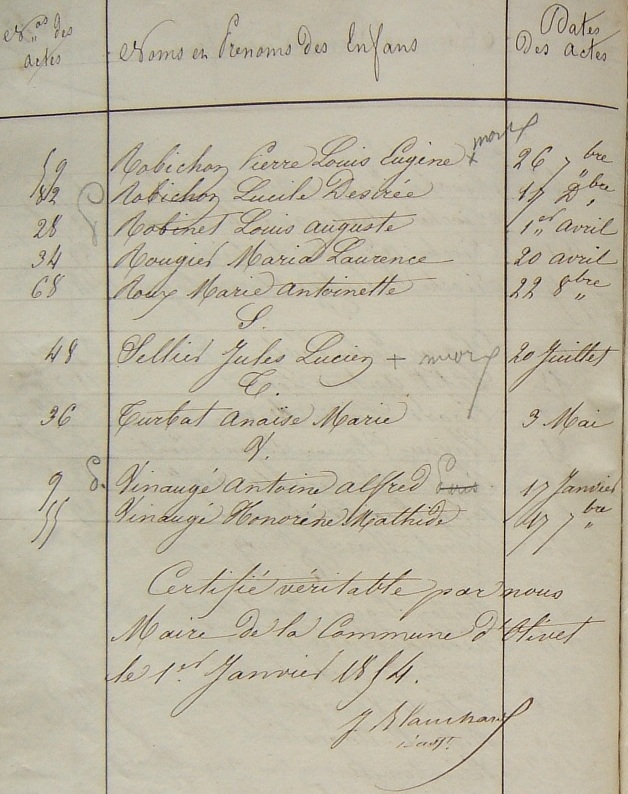 Nos des actes Noms et Prenoms des Enfans Dates Des actes
59 Robichon Pierre Louis Eugène + mort 26 7bre
82 Robichon Lucile Desirée 17 Dbre
28 Robinet Louis auguste 1er avril
34 Rougier Maria Laurence 20 avril
68 Roux Marie antoinette 22 8bre
S.
48 Sellier Jules Lucien + mort 20 Juillet
T.
36 Turbat anaïse Marie 3 Mai
V.
9 Vinaugé Antoine alfred 17 Janvier
55 Vinaugé Honorène Mathide 17 7bre
Certifié véritable par nous
Maire de la Commune d'Olivet
le 1er Janvier 1854.
J Blanchard